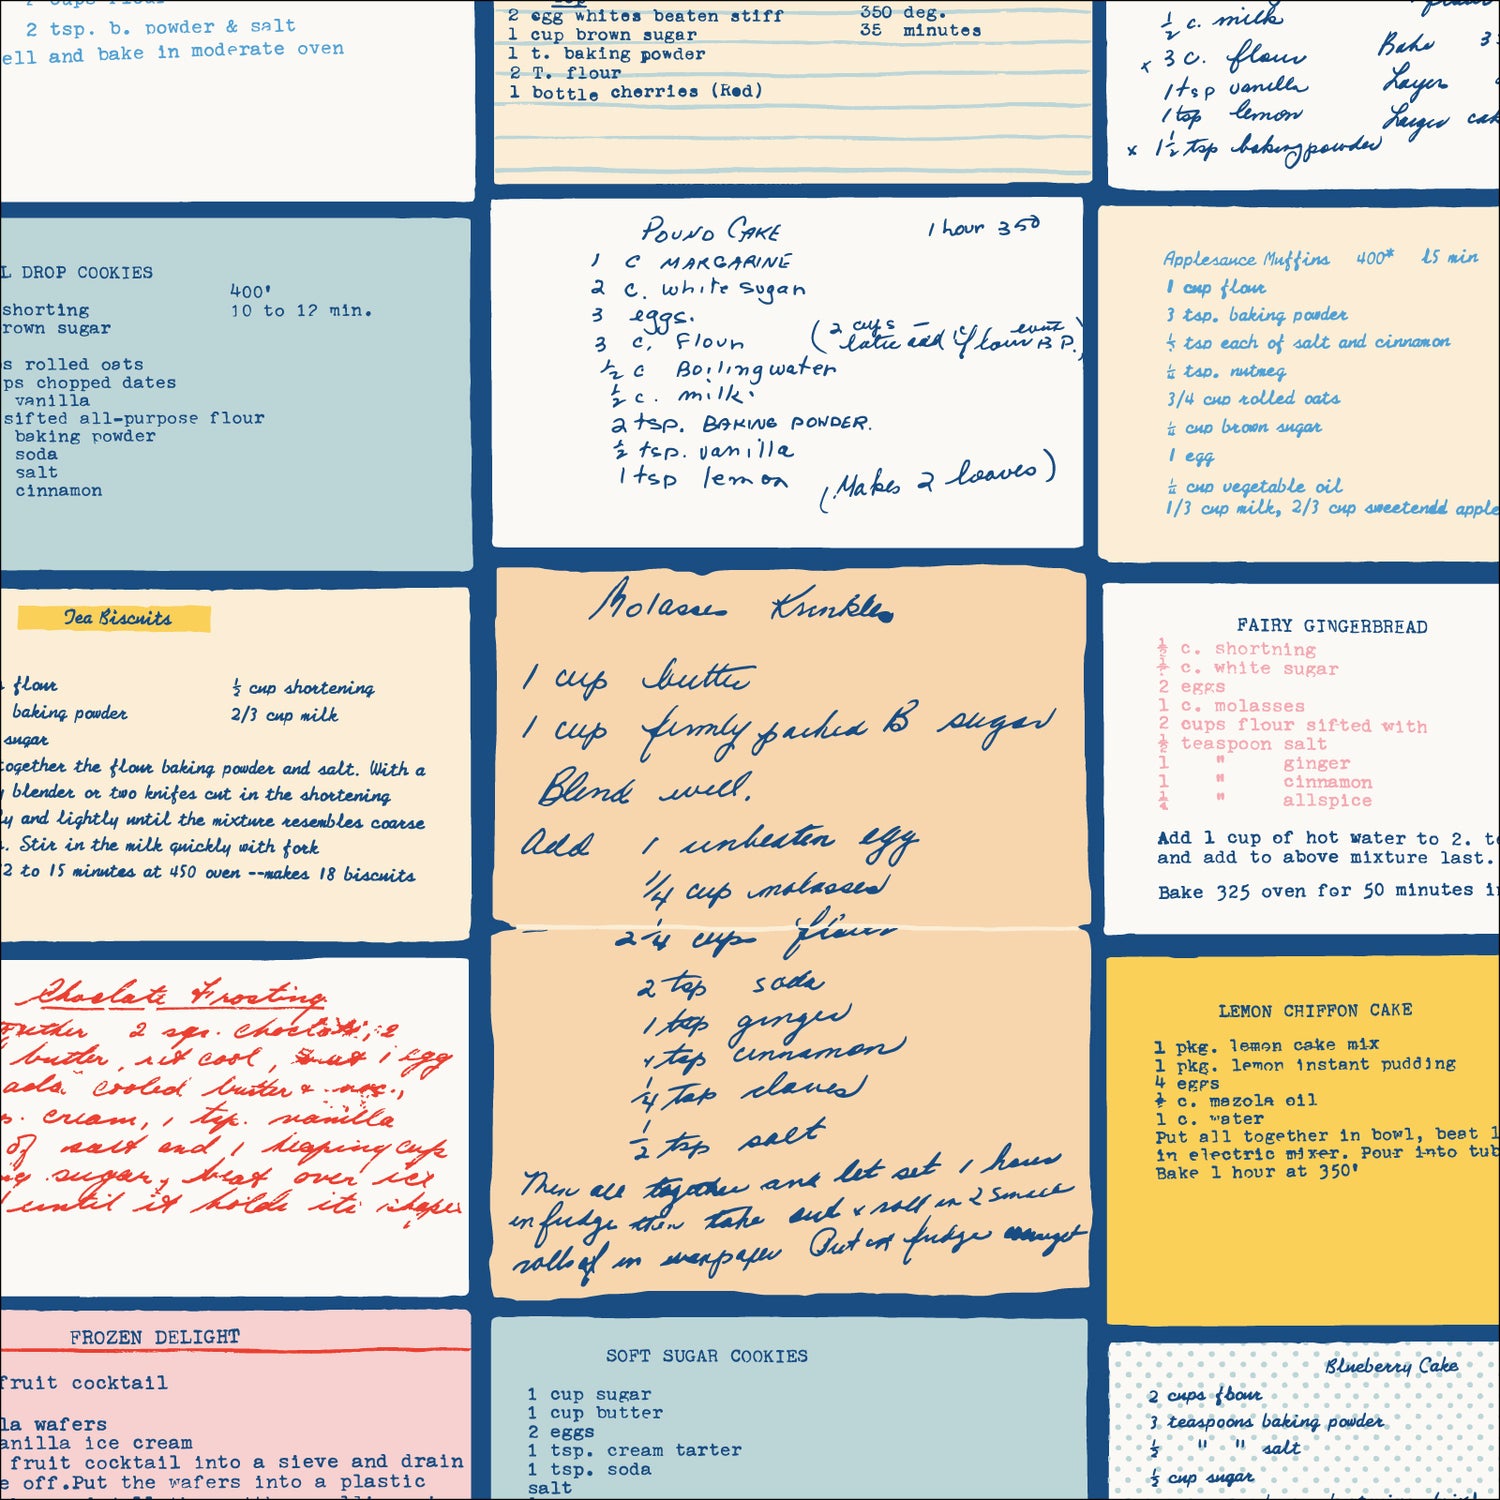 cups flour
2 tsp. b. powder & salt
ell and bake in moderate oven
2 egg whites beaten stiff 350 deg.
1 cup brown sugar 35 minutes
1 t. baking powder
2 T. flour
1 bottle cherries (Red)
½ c. milk
x 3 c. flour Bake 3
1 tsp vanilla Layer
1 tsp lemon Larger cak
x 1½ tsp baking powder
L DROP COOKIES
400'
shorting 10 to 12 min.
rown sugar
s rolled oats
ps chopped dates
vanilla
sifted all-purpose flour
baking powder
soda
salt
cinnamon
POUND CAKE 1 hour 350
1 C MARGARINE
2 C. white sugar
3 eggs.
3 C. Flour (2 cups
later add flour B P.)
½ c Boiling water
½ c. milk.
2 tsp. BAKING POWDER.
½ tsp. vanilla
1 tsp lemon
(Makes 2 loaves)
Applesauce Muffins 400* 15 min
1 cup flour
3 tsp. baking powder
½ tsp each of salt and cinnamon
¼ tsp. nutmeg
3/4 cup rolled oats
¼ cup brown sugar
1 egg
¼ cup vegetable oil
1/3 cup milk, 2/3 cup sweetendd apple
Tea Biscuits
flour ½ cup shortening
baking powder 2/3 cup milk
sugar
together the flour baking powder and salt. With a
blender or two knifes cut in the shortening
ly and lightly until the mixture resembles coarse
. Stir in the milk quickly with fork
2 to 15 minutes at 450 oven --makes 18 biscuits
Molasses Krinkles
1 cup butter
1 cup firmly packed B sugar
Blend well.
Add 1 unbeaten egg
1/4 cup molasses
2 1/4 cups flour
2 tsp soda
1 tsp ginger
1 tsp cinnamon
1/4 tsp cloves
½ tsp salt
Then all together and let set 1 hour
in fudge then take out & roll in 2 small
rolls of in waxpaper Put in fudge
FAIRY GINGERBREAD
½ c. shortning
½ c. white sugar
2 eggs
1 c. molasses
2 cups flour sifted with
½ teaspoon salt
1 " ginger
1 " cinnamon
¼ " allspice
Add 1 cup of hot water to 2. t
and add to above mixture last.
Bake 325 oven for 50 minutes i
Choclate Frosting
2 sqs. choclate, 2
butter, let cool, 1 egg
add cooled butter &
cream, 1 tsp. vanilla
of salt and 1 heaping cup
ng sugar, beat over ice
until it holds its shape
LEMON CHIFFON CAKE
1 pkg. lemon cake mix
1 pkg. lemon instant pudding
4 eggs
c. mazola oil
1 c. water
Put all together in bowl, beat 1
in electric mixer. Pour into tub
Bake 1 hour at 350'
FROZEN DELIGHT
fruit cocktail
la wafers
anilla ice cream
fruit cocktail into a sieve and drain
e off.Put the wafers into a plastic
SOFT SUGAR COOKIES
1 cup sugar
1 cup butter
2 eggs
1 tsp. cream tarter
1 tsp. soda
salt
Blueberry Cake
2 cups flour
3 teaspoons baking powder
½ " " salt
½ cup sugar